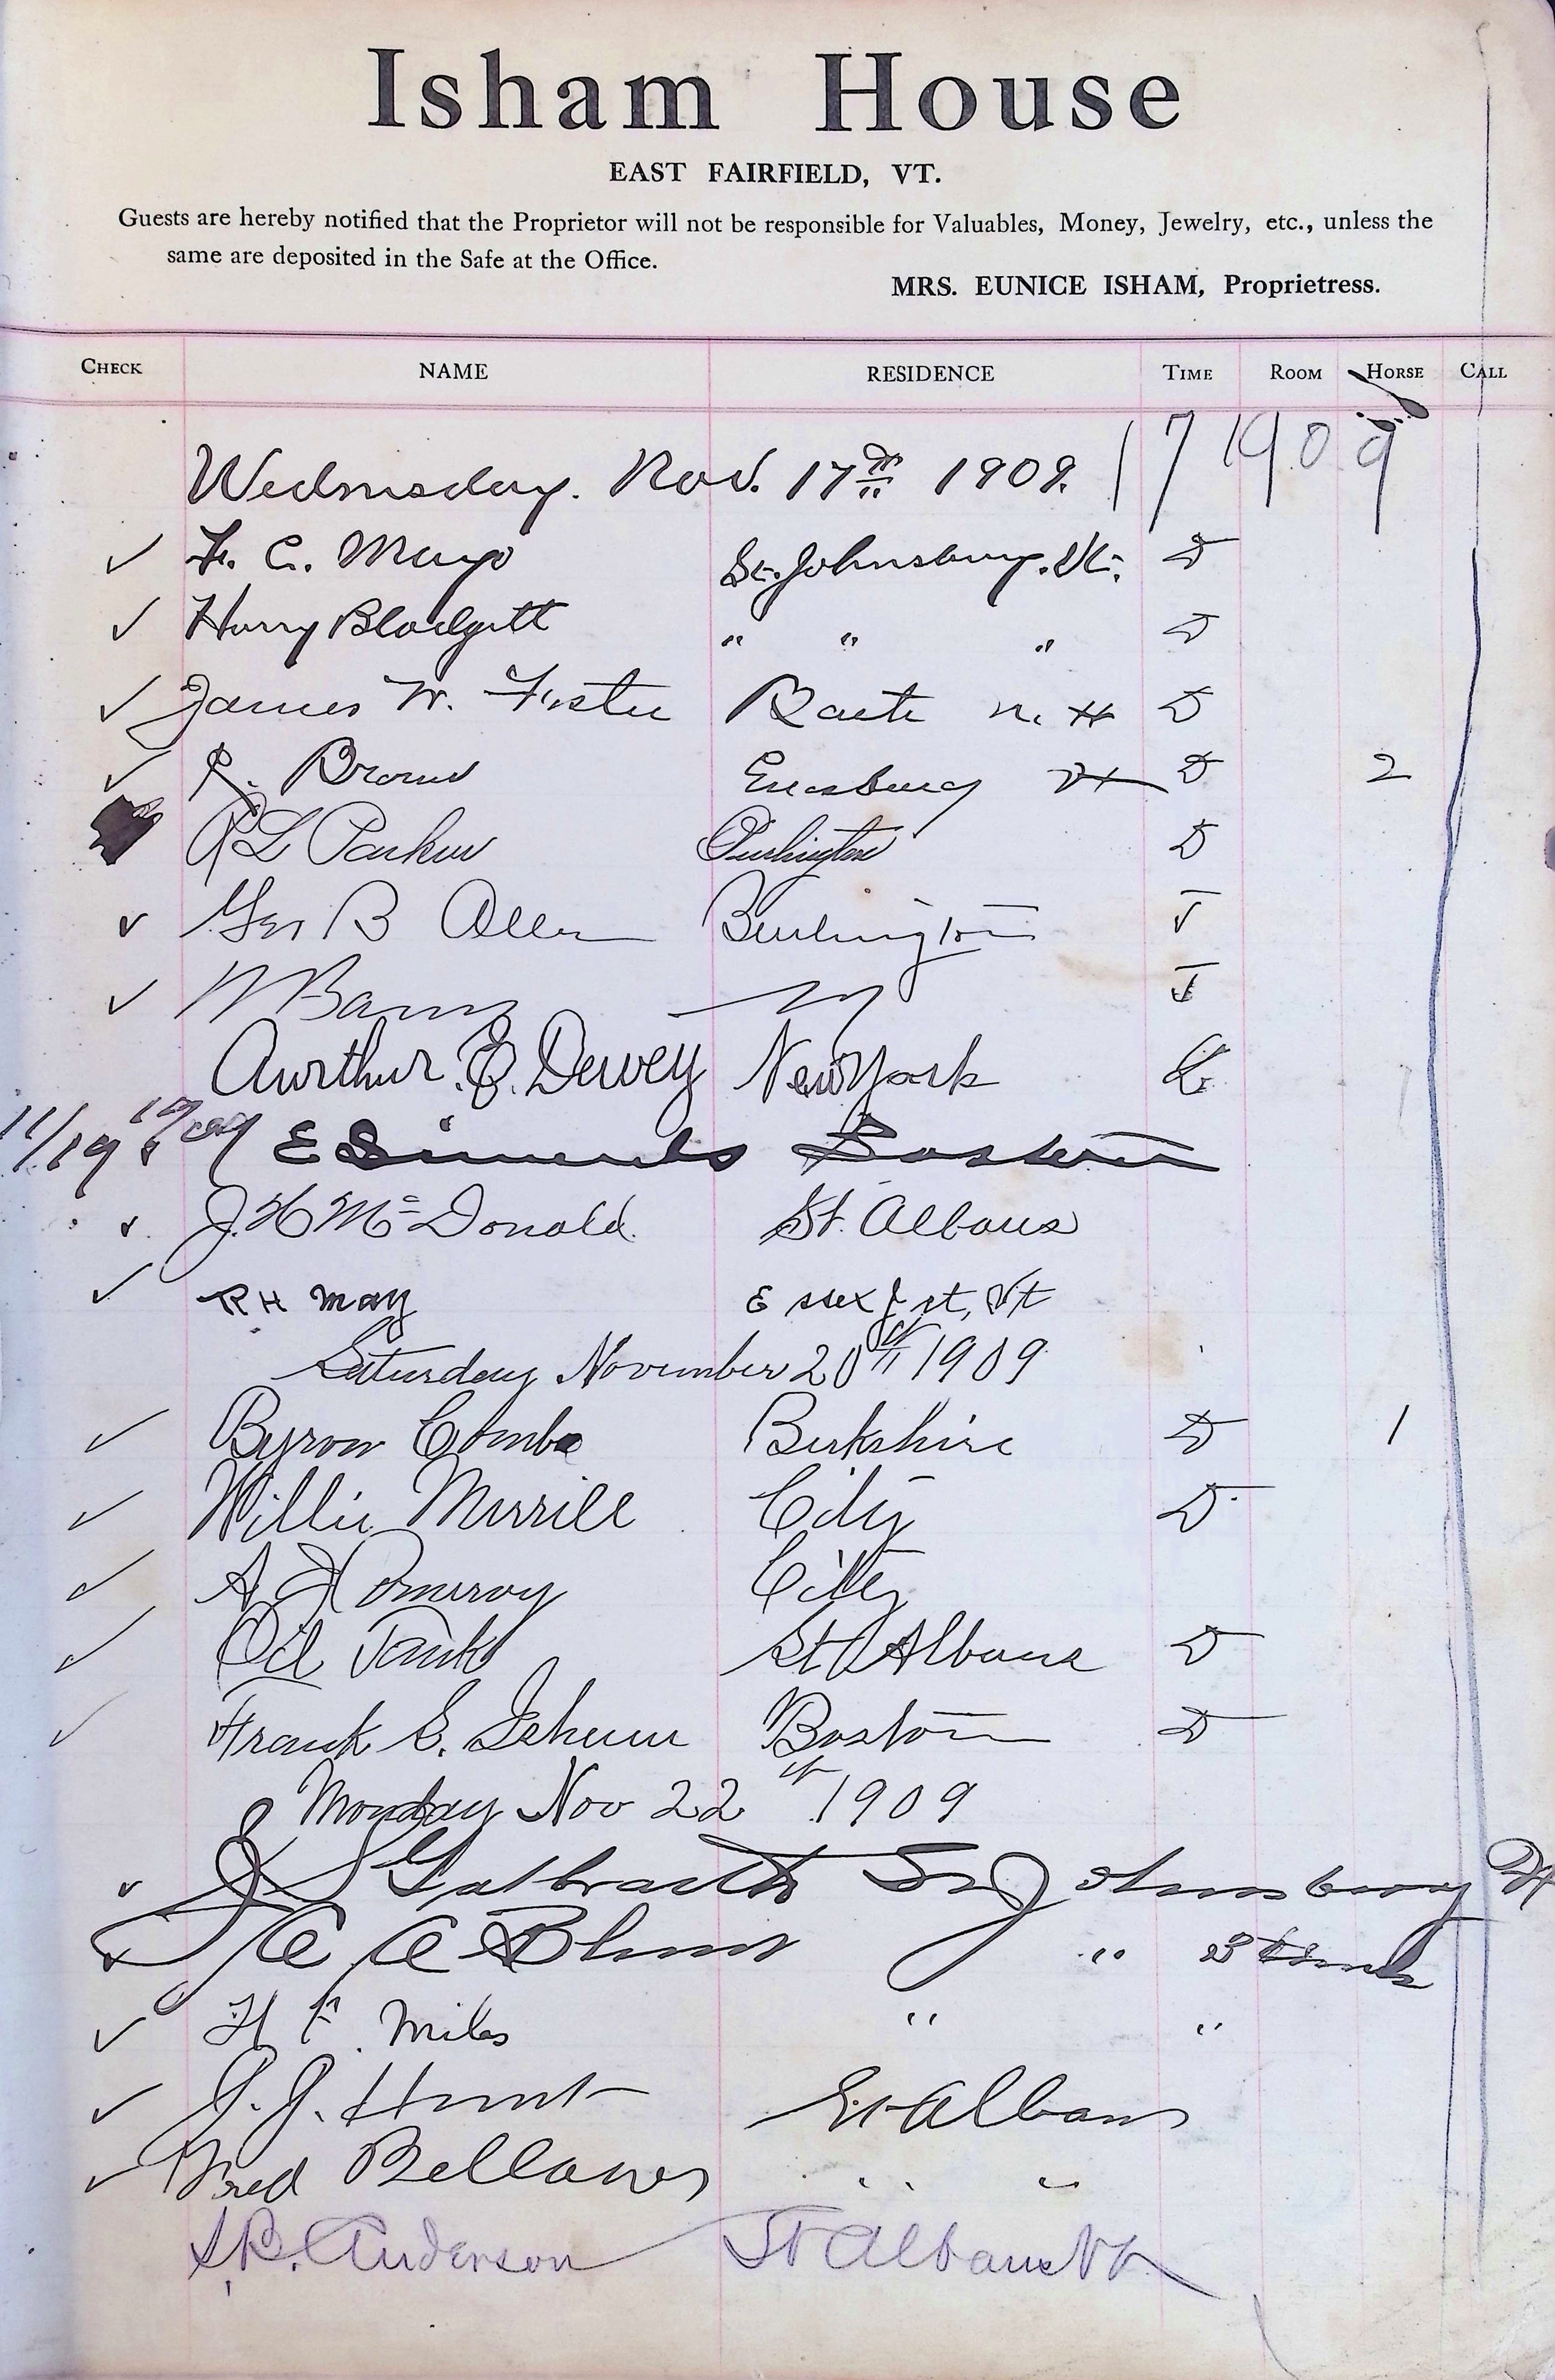 Isham House
EAST FAIRFIELD, VT.
Guests are hereby notified that the Proprietor will not be responsible for Valuables, Money, Jewelry, etc., unless the
same are deposited in the Safe at the Office.
MRS. EUNICE ISHAM, Proprietress.
CHECK NAME RESIDENCE TIME ROOM HORSE CALL
Wednesday. Nov. 17th 1909. 17 1909
✓ F. C. Mayo St. Johnsbury. Vt. D
✓ Harry Blodgett " " " D
✓ James W. Foster N. H D
✓ Brown Enosburg Vt D 2
Parker Burlington D
✓ Geo B Allen Burlington T
✓ W T
Aurthur. E. Dewey New York
11/19 E Simonds Boston
✓ J. H Mc Donald. St. Albans
✓ R H May Essex Jct, Vt
Saturday November 20th 1909
✓ Byron Combs Berkshire D 1
✓ Willie Merrill City D
✓ A H Pomeroy City
✓ Oil Tank St Albans D
✓ Frank E. Isham Boston D
Monday Nov 22 1909
✓ Galbraith St Johnsbury Vt
C A Blunt "
✓ H F. Miles " "
✓ J. J. Hunt St Albans
✓ Fred Bellows " "
S. B. Anderson St Albans Vt